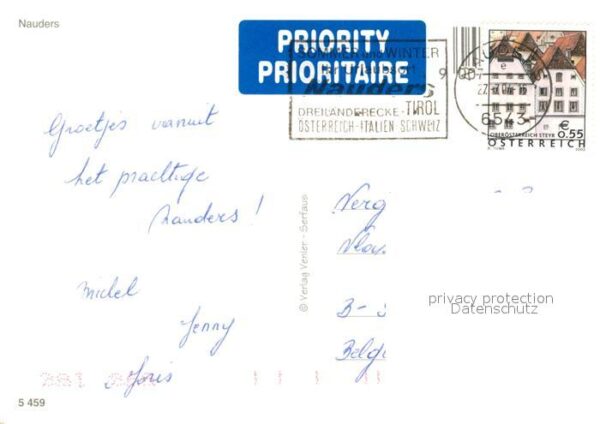 Nauders
PRIORITY
PRIORITAIRE
SOMMER und WINTER
Nauders
DREILÄNDERECKE - TIROL
ÖSTERREICH-ITALIEN-SCHWEIZ
6543
€
0.55
OBERÖSTERREICH STEYR
ÖSTERREICH
Groetjes vanuit
het prachtige
Nauders!
Michel
Jenny
Joris
© Verlag Venier - Serfaus
B-
Belgi
privacy protection
Datenschutz
S 459